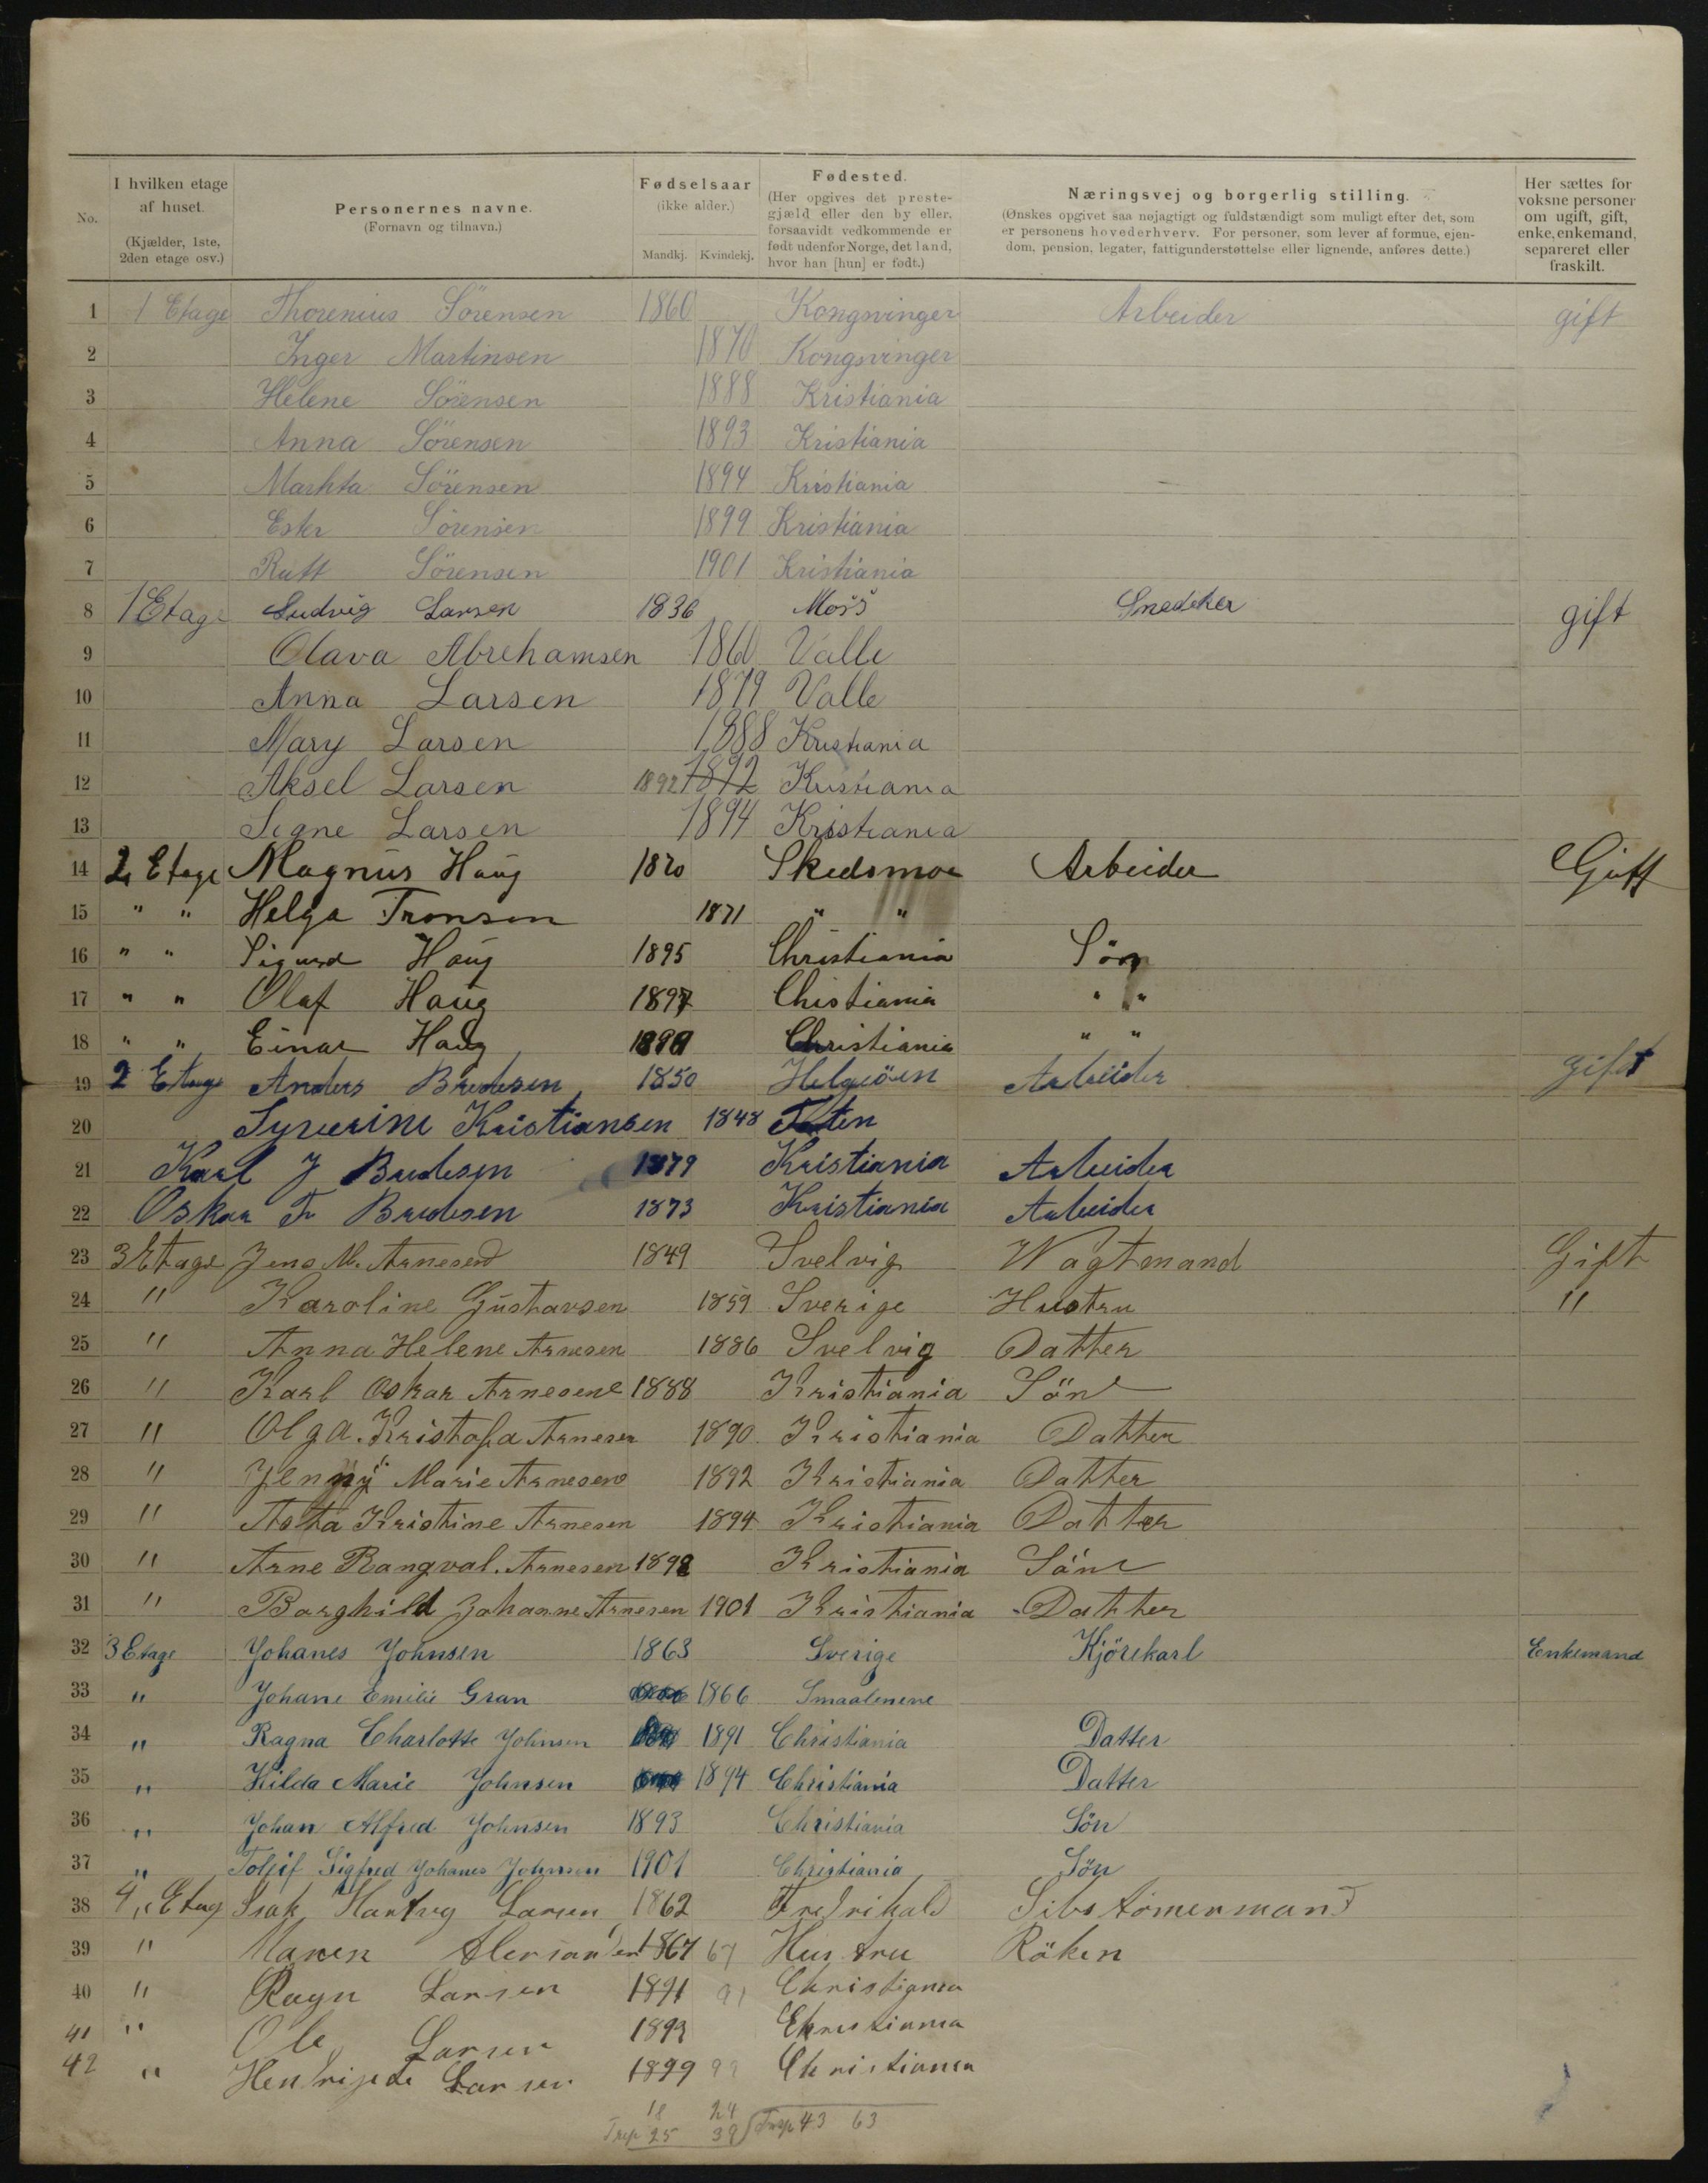 No.
I hvilken etage af huset. (Kjælder, 1ste, 2den etage osv.)
Personernes navne. (Fornavn og tilnavn.)
Fødselsaar (ikke alder.) Mandkj. Kvindekj.
Fødested. (Her opgives det prestegjæld eller den by eller, forsaavidt vedkommende er født udenfor Norge, det land, hvor han [hun] er født.)
Næringsvej og borgerlig stilling. (Ønskes opgivet saa nøjagtigt og fuldstændigt som muligt efter det, som er personens hovederhverv. For personer, som lever af formue, ejendom, pension, legater, fattigunderstøttelse eller lignende, anføres dette.)
Her sættes for voksne personer om ugift, gift, enke, enkemand, separeret eller fraskilt.
1 1 Etage Thorenius Sörensen 1860 Kongsvinger Arbeider gift
2 Inger Martinsen 1870 Kongsvinger
3 Helene Sörensen 1888 Kristiania
4 Anna Sörensen 1893 Kristiania
5 Marhta Sörensen 1894 Kristiania
6 Ester Sörensen 1899 Kristiania
7 Rutt Sörensen 1901 Kristiania
8 1 Etage Ludvig Larsen 1836 Moss Snedeker gift
9 Olava Abrehamsen 1860 Valle
10 Anna Larsen 1879 Valle
11 Mary Larsen 1888 Kristiania
12 Aksel Larsen 1892 1892 Kristiania
13 Signe Larsen 1894 Kristiania
14 2 Etage Magnus Haug 1870 Skedsmoe Arbeider Gift
15 " " Helga Tronsen 1871 " "
16 " " Sigurd Haug 1895 Christiania Sön
17 " " Olaf Haug 1897 Chistiania " "
18 " " Einar Haug Christiania " "
19 2 Etage Anders Bredesen 1850 Helgeöen Arbeider gift
20 Syverine Kristiansen 1848 Toten
21 Karl J Bredesen 1879 Kristiania Arbeider
22 Oskar F Bredesen 1873 Kristiania Arbeider
23 3 Etage Jens M. Arnesen 1849 Svelvig Vagtmand Gift
24 " Karoline Gustavsen 1859 Sverige Hustru "
25 " Anna Helene Arnesen 1886 Svelvig Datter
26 " Karl Oskar Arnesen 1888 Kristiania Sön
27 " Olga. Kristofa Arnesen 1890 Kristiania Datter
28 " Jenny Marie Arnesen 1892 Kristiania Datter
29 " Asta Kristine Arnesen 1894 Kristiania Datter
30 " Arne Rangval. Arnesen 1898 Kristiania Sön
31 " Borghild Johanne Arnesen 1901 Kristiania Datter
32 3 Etage Johanes Johnsen 1863 Sverige Kjörekarl Enkemand
33 " Johane Emilie Gran 1866 Smaalenene
34 " Ragna Charlotte Johnsen 1891 Christiania Datter
35 " Hilda Marie Johnsen 1894 Christiania Datter
36 " Johan Alfred Johnsen 1893 Christiania Sön
37 " Toljif Sigfred Johanes Johnsen 1901 Christiania Sön
38 4 Etag Isak Hartvig Larsen 1862 Fredrikald Sibstömermand
39 " Maren 1867 67 Hustru Röken
40 " Ragn Larsen 1891 91 Christiania
41 " Ole Larsen 1893 Christiania
42 " Hendrijete Larsen 1899 99 Christiania
18 24
25 39 43 63